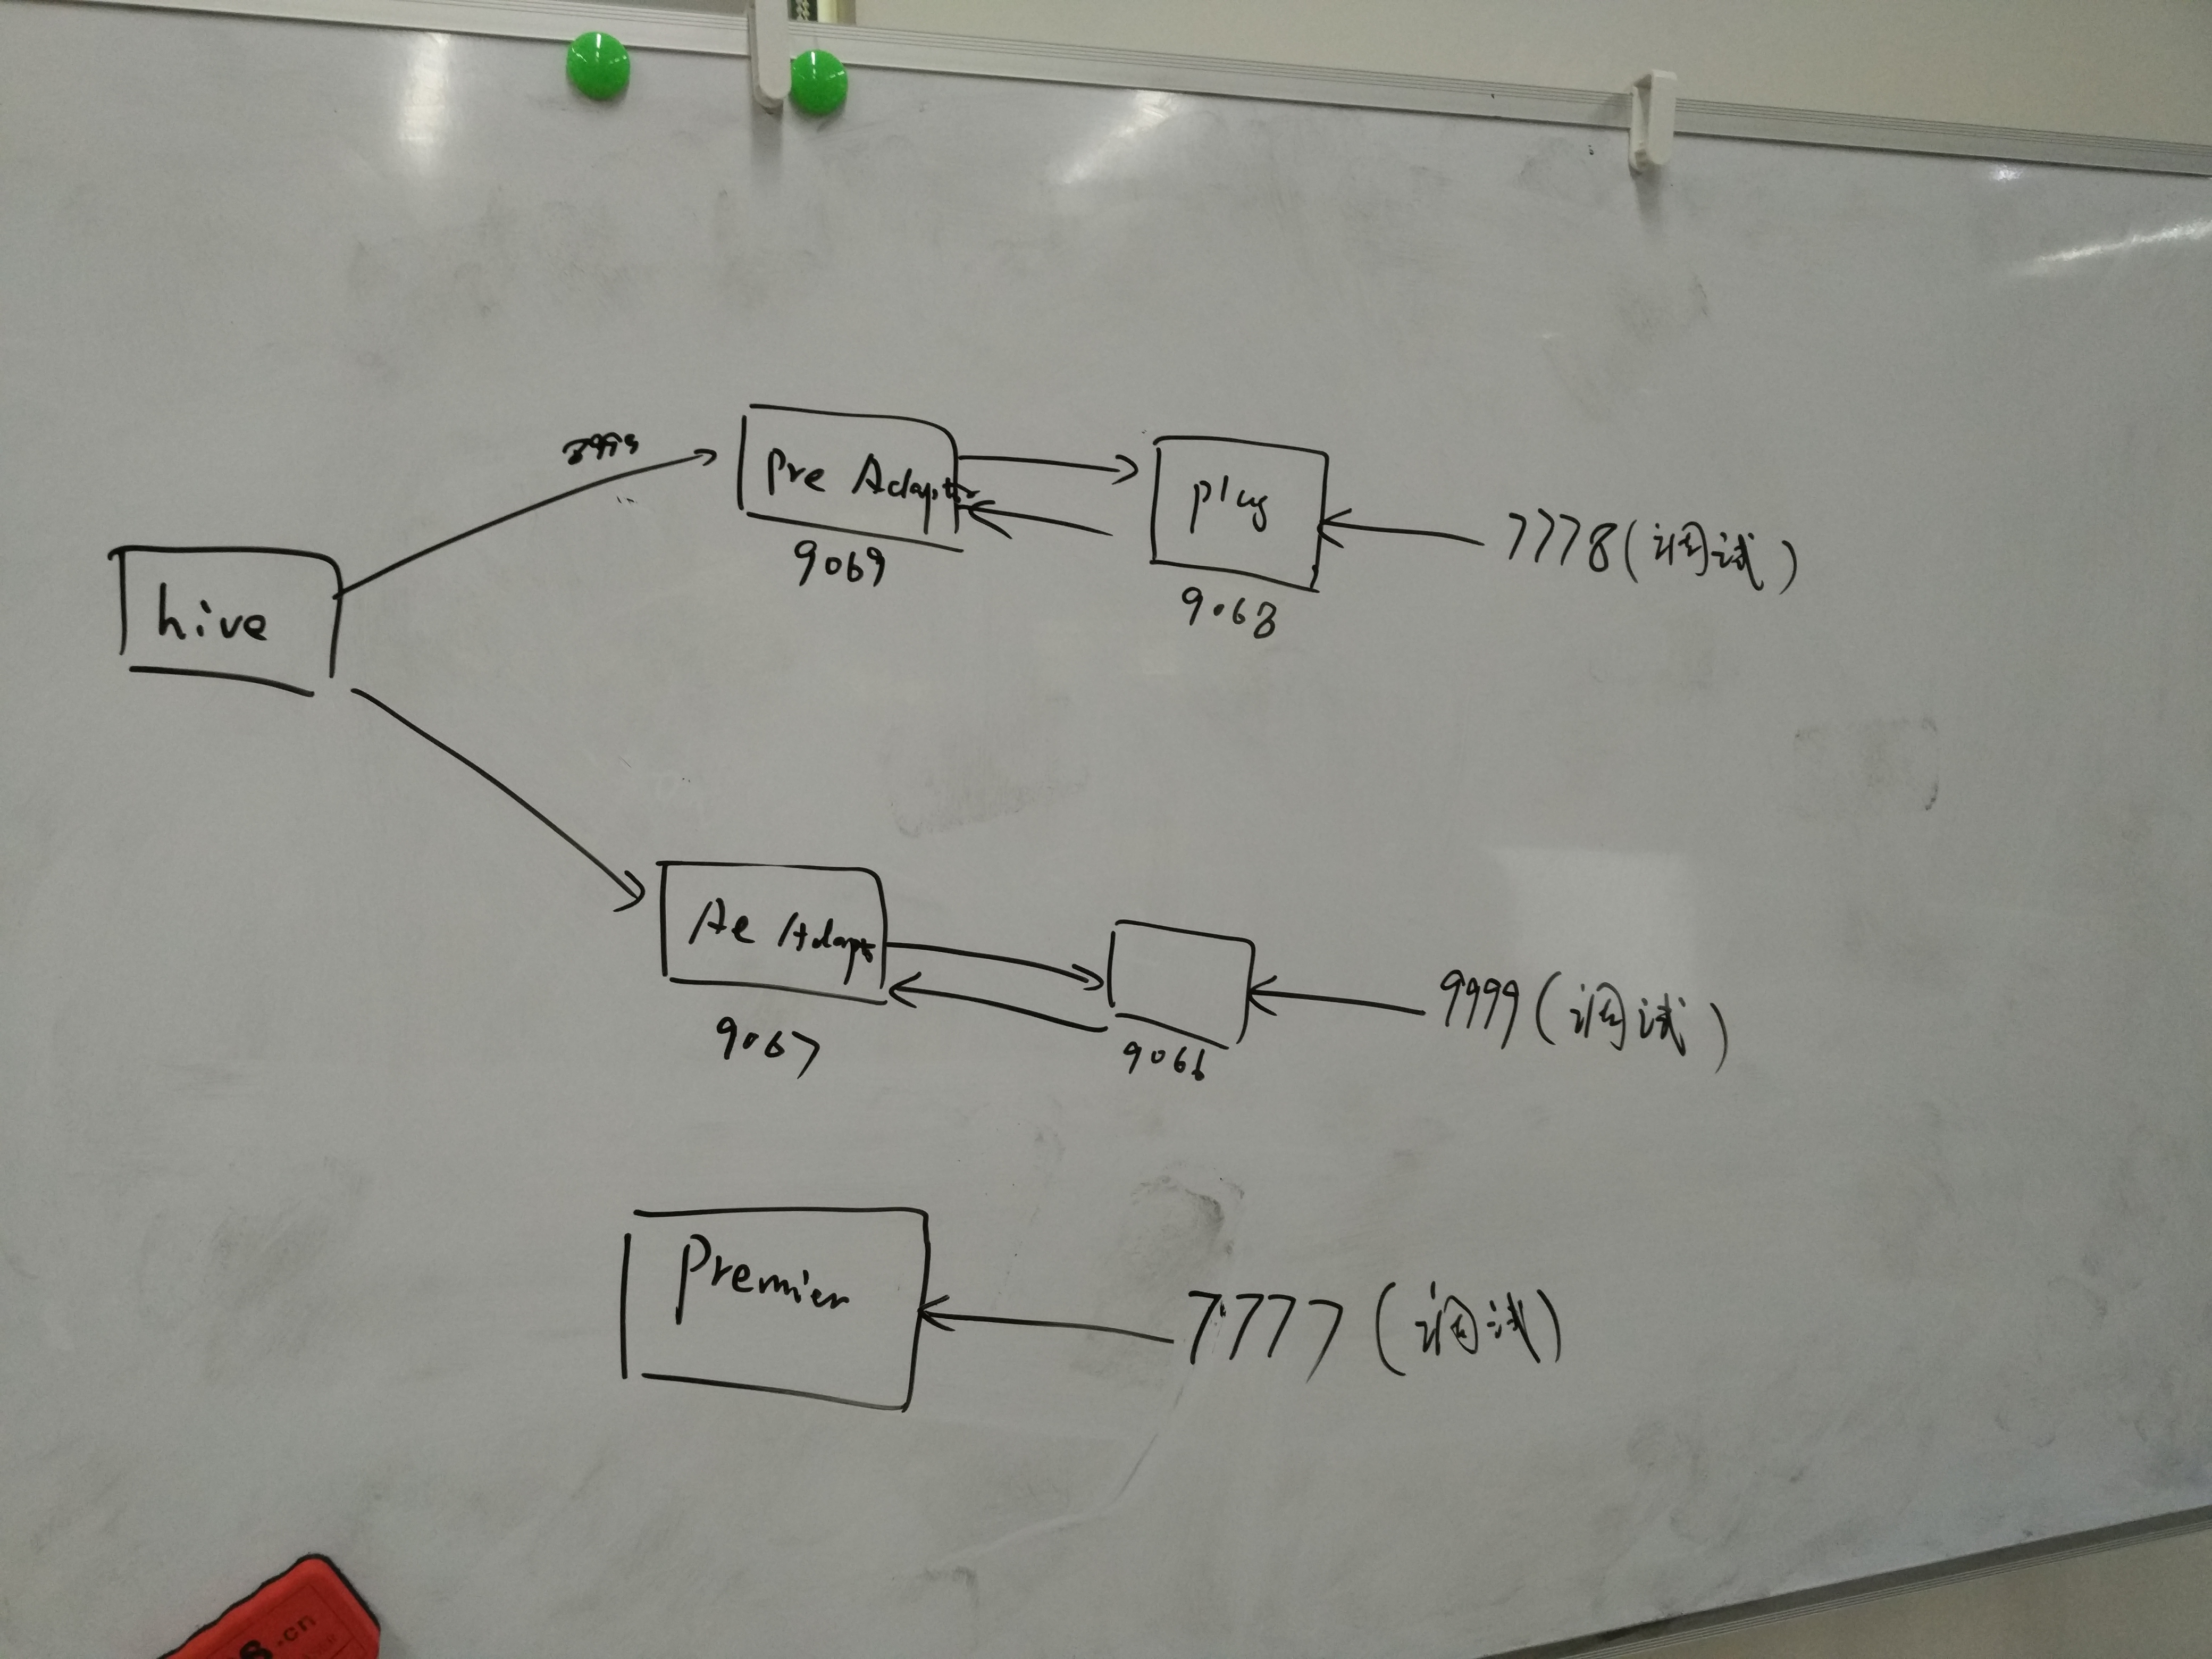 hive
Pre Adapter
9069
plug
9068
7778(调试)
Ae Adapt
9067
9066
9999(调试)
Premier
7777(调试)
.cn